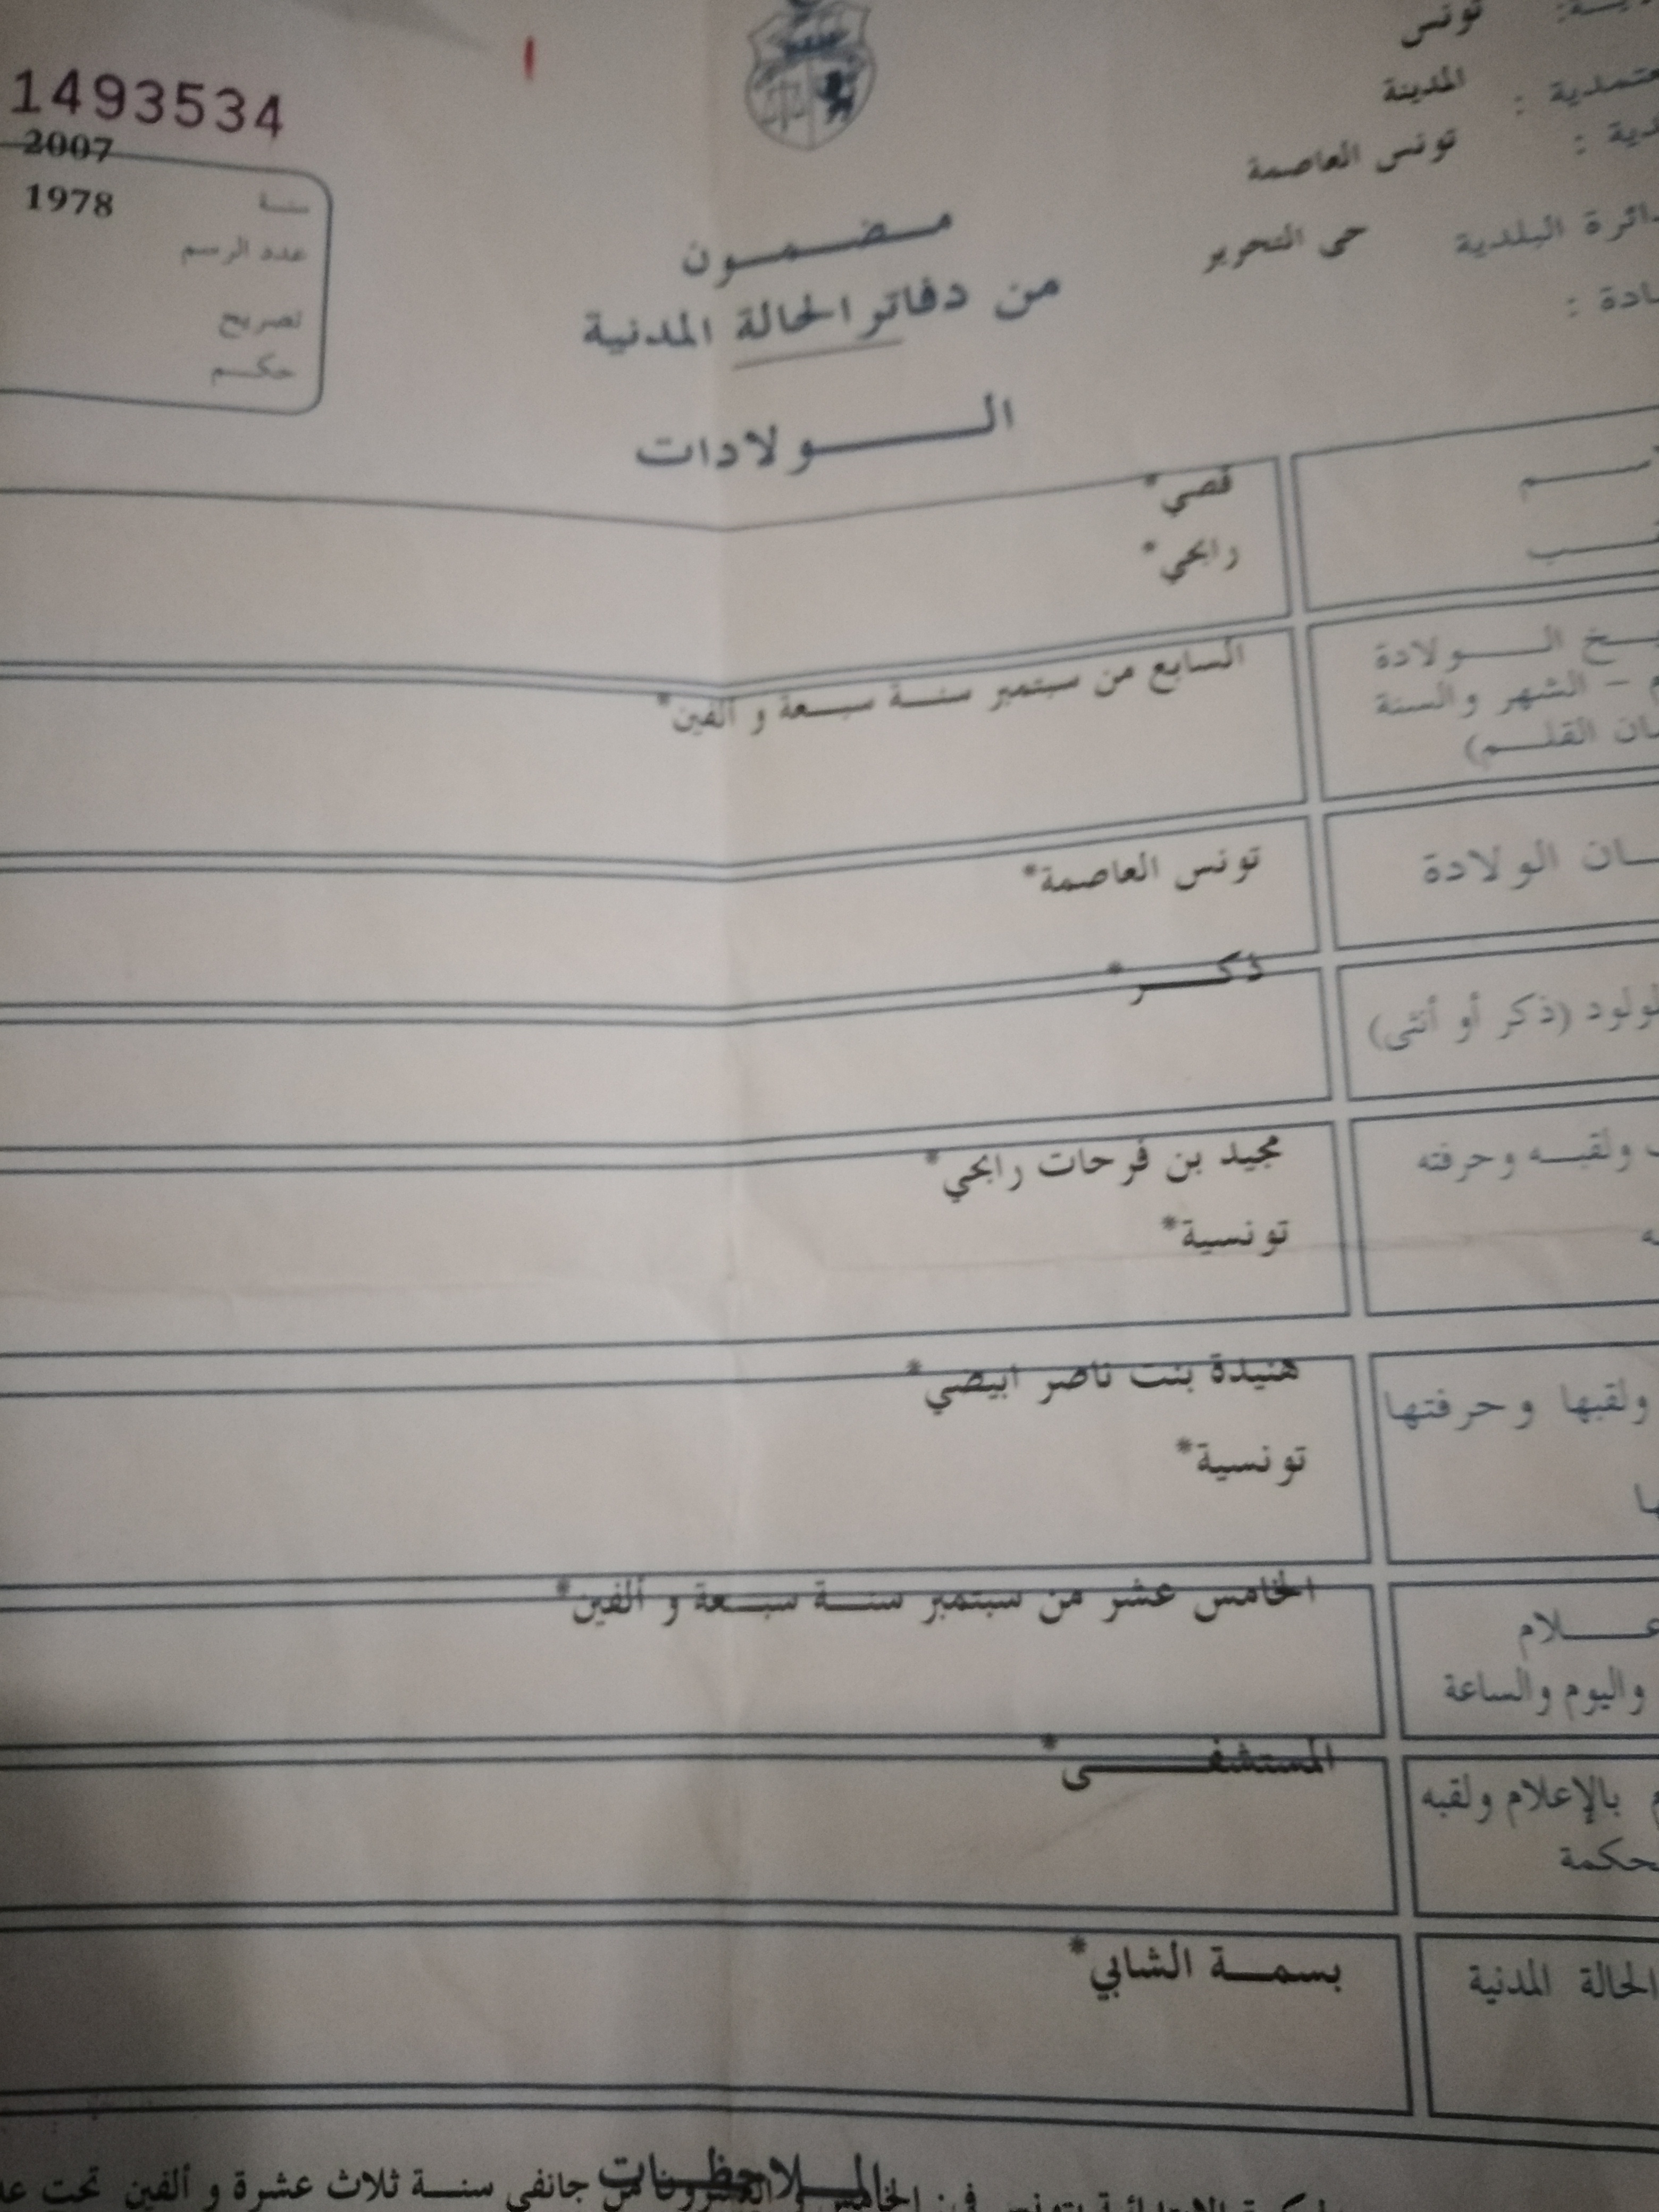 تونس
المدينة
تونس العاصمة
دائرة البلدية حى التحرير
1493534
2007
سنة 1978
عدد الرسم
تصريح
حكم
مضمون
من دفاتر الحالة المدنية
الولادات
قصي*
رابحي*
الولادة
الشهر والسنة
القلم)
السابع من سبتمبر سنة سبعة و ألفين*
الولادة
تونس العاصمة*
(ذكر أو أنثى)
ذكر*
ولقبه وحرفته
مجيد بن فرحات رابحي*
تونسية*
ولقبها وحرفتها
هنيدة بنت ناصر ابيضي*
تونسية*
واليوم والساعة
الخامس عشر من سبتمبر سنة سبعة و ألفين*
بالإعلام ولقبه
المستشفى*
الحالة المدنية
بسمة الشابي*
الملاحظات
جانفي سنة ثلاث عشرة و ألفين تحت